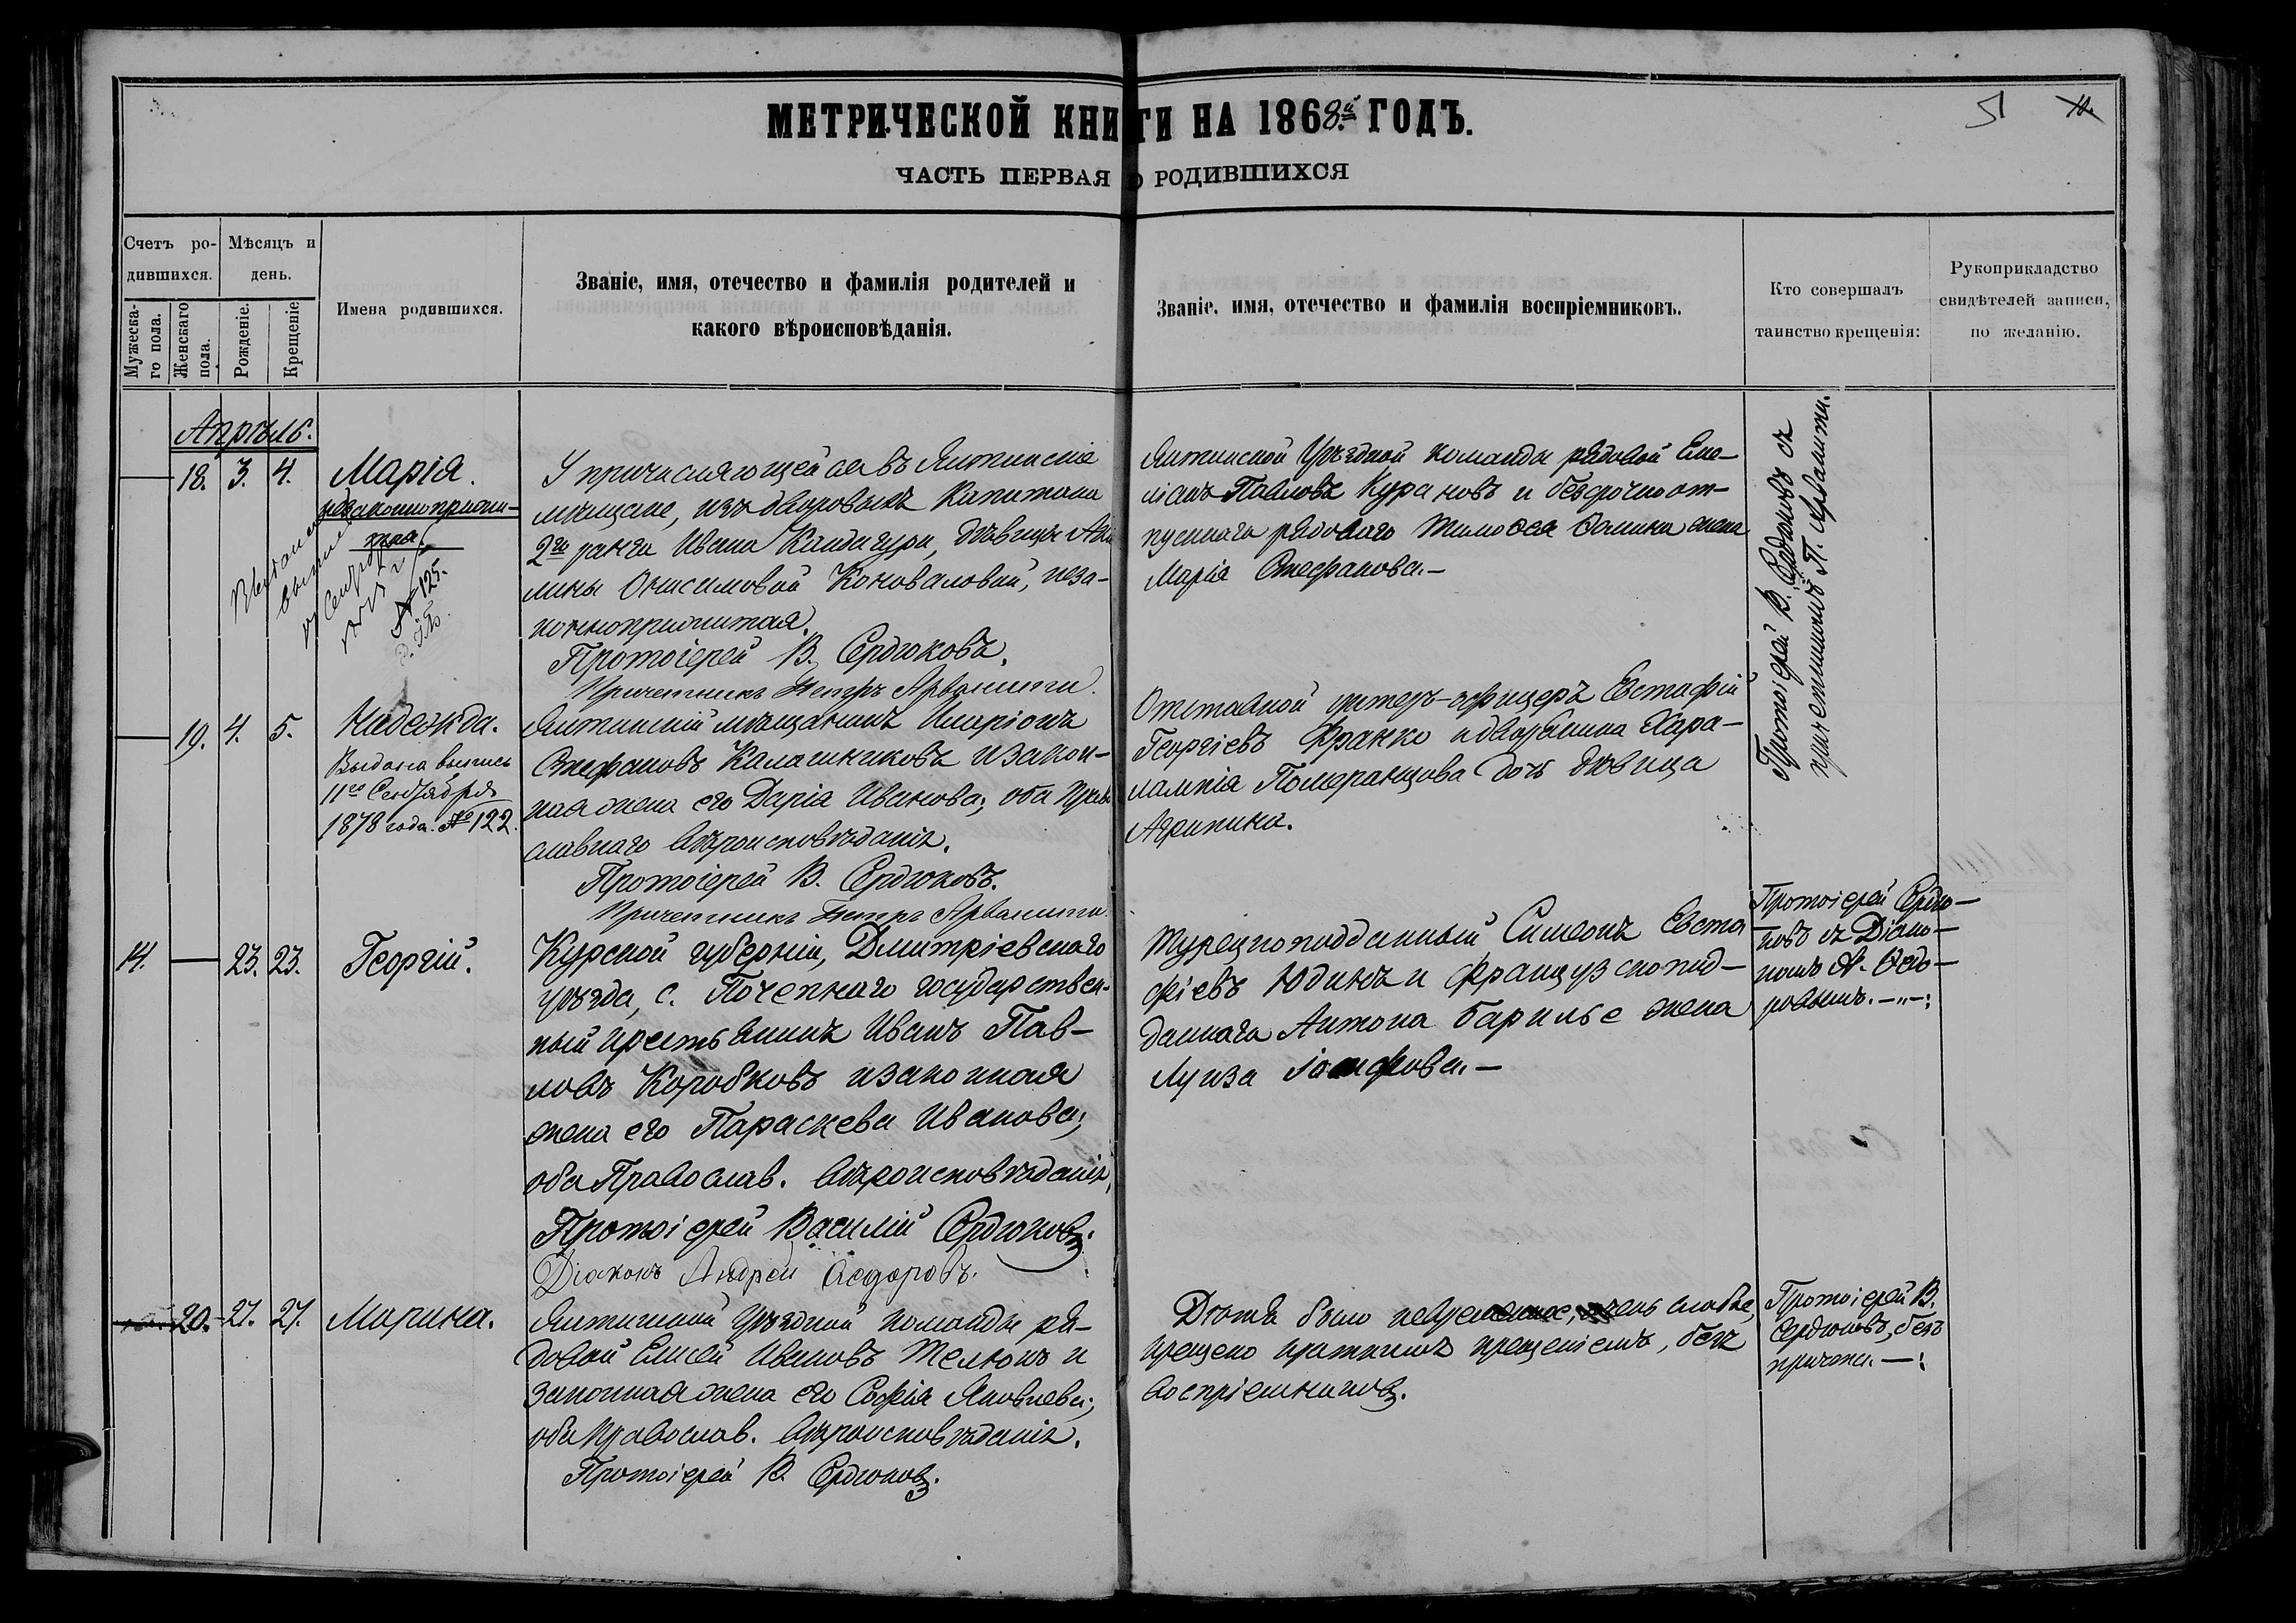 МЕТРИЧЕСКОЙ КНИГИ НА 1868.й ГОДЪ.
51
ЧАСТЬ ПЕРВАЯ О РОДИВШИХСЯ
Счетъ ро-
дившихся.
Мужеска-
го пола.
Женскаго
пола.
Мѣсяцъ и
день.
Рожденіе.
Крещеніе
Имена родившихся.
Званіе, имя, отечество и фамилія родителей и
какого вѣроисповѣданія.
Званіе, имя, отечество и фамилія воспріемниковъ.
Кто совершалъ
таинство крещенія:
Рукоприкладство
свидѣтелей записи,
по желанію.
Апрѣль.
18. 3. 4.
Марія.
незаконноприжи-
тая.
№ 125.
У причисляющейся въ Ялтинскіе
мѣщане, изъ дворовыхъ Капитана
2го ранга Ивана Кандагури, дѣвицы
лины Онисимовой Коноваловой, неза-
конноприжитая.
Протоіерей В. Сердюковъ.
Причетникъ Петръ Арванити.
Ялтинской Уѣздной команды рядовой Еме-
ліанъ Павловъ Курановъ и безсрочноот-
пускнаго рядоваго Тимоѳея жена
Марія Стефанова.—
Протоіерей В. Сердюковъ съ
причетникомъ П. Арванити.
19. 4. 5.
Надежда.
Выдана выпись
11го Сентября
1878 года. № 122.
Ялтинскій мѣщанинъ Иларіонъ
Стефановъ Калашниковъ и закон-
ная жена его Дарія Иванова; оба Право
славнаго вѣроисповѣданія.
Протоіерей В. Сердюковъ.
Причетникъ Петръ Арванити.
Отставной унтеръ-офицеръ Евстафій
Георгіевъ Франко и дворянина Хара-
лампія Померанцова дочь дѣвица
Агрипина.
14. 23. 23.
Георгій.
Курской губерніи, Дмитріевскаго
уѣзда, с. Почепнаго государствен-
ный крестьянинъ Иванъ Пав-
ловъ Коробковъ и законная
жена его Параскева Иванова;
оба Православ. вѣроисповѣданія.
Протоіерей Василій Сердюковъ.
Діаконъ Андрей Ѳедоровъ.
Турецкоподданный Симеонъ Евста
фіевъ Юдинъ и французскопод-
даннаго Антона Барилье жена
Луиза Іосифова.—
Протоіерей Сердю-
ковъ съ Діако-
номъ А. Ѳедо-
ровымъ.—"—:
20. 27. 27.
Марина.
Ялтинской Уѣздной команды ря-
довой Елисей Ивановъ Телюкъ и
законная жена его Софія Яковлева;
оба Православ. вѣроисповѣданія.
Протоіерей В. Сердюковъ.
Дѣтя было очень слабое,
крещено краткимъ крещеніемъ, безъ
воспріемниковъ.
Протоіерей В.
Сердюковъ, безъ
причта.—: